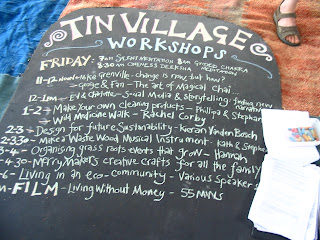 TIN VILLAGE
WORKSHOPS
FRIDAY: 7am SILENT MEDITATION 8am GUIDED CHAKRA MEDITATION
8-30 am ONENESS DEEKSHA
11-12 Grenville - change is easy but how?
- Goose & Fan - The art of Magical chai
12-1pm - Ev & Charlotte - Social Media & Storytelling - finding new narratives
1-2 - Make your own cleaning products - Phillipa & Stephanie
Wild Medicine Walk - Rachel Corby
2-3 - Design for future Sustainability - Kieran Vanden Bosch
2-3.30 - Make a Waste Wood Musical Instrument - Kath & Stephen
3-4 - Organising grass roots events that grow - Hannah
-4.30 - Merry Makers creative Crafts for all the family
-6 - Living in an eco-community - Various Speakers
- FILM - Living Without Money - 55 MINS